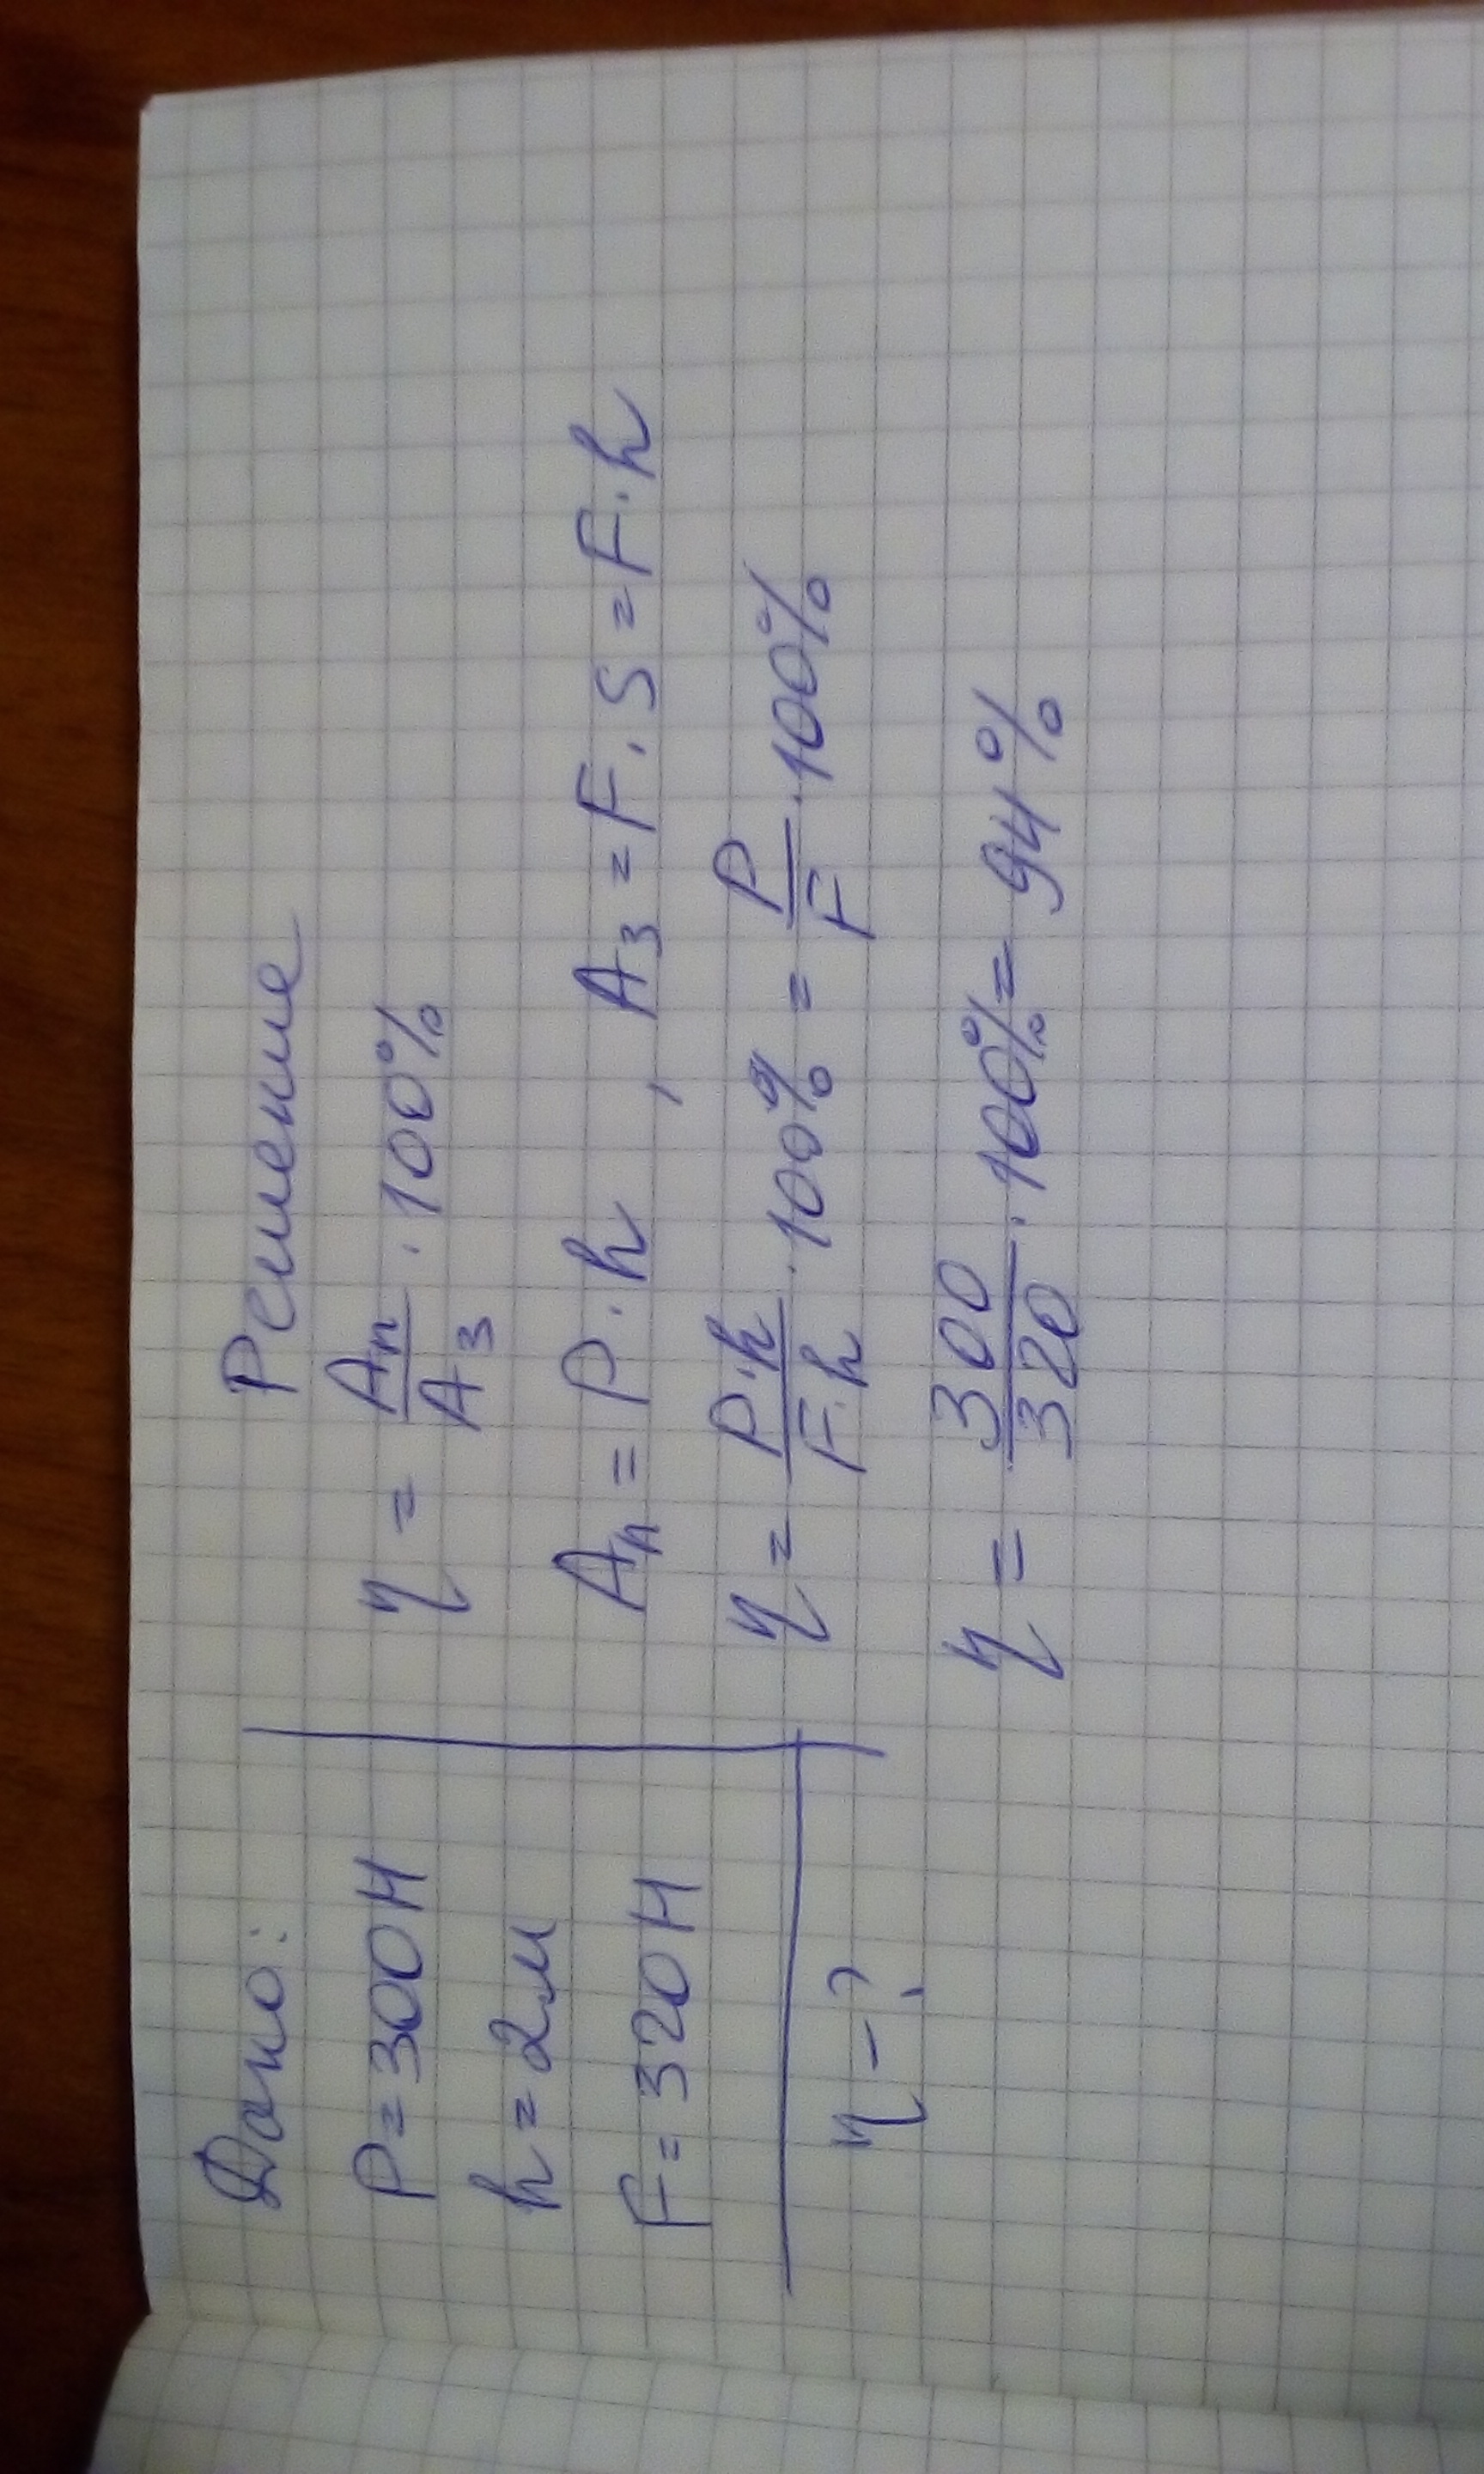 Дано:
P = 300 Н
h = 2 м
F = 320 Н
η - ?
Решение
η = Aп/Aз · 100%
Aп = P · h , Aз = F · S = F · h
η = P·h/F·h · 100% = P/F · 100%
η = 300/320 · 100% = 94%